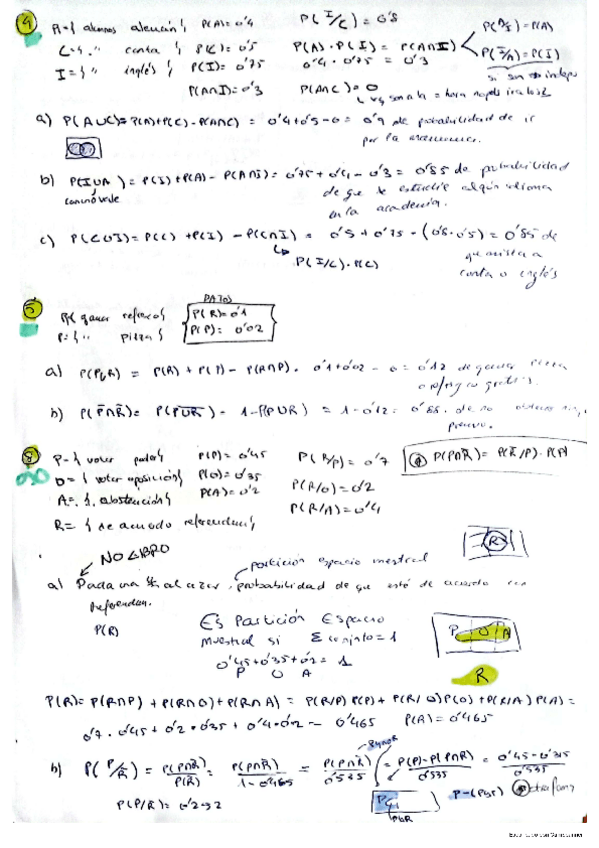 4 A={ alumnos alemán} P(A)=0'4 P(I/C)=0'8
C={ " conta } P(C)=0'5 P(A)·P(I)=P(A∩I) P(A/I)=P(A)
I={ " inglés } P(I)=0'75 0'4·0'75=0'3 P(I/A)=P(I)
P(A∩I)=0'3 P(A∩C)=0 si son indep
a) P(A∪C)=P(A)+P(C)-P(A∩C) = 0'4+0'5-0=0'9 de probabilidad de ir
por la
b) P(I∪A)=P(I)+P(A)-P(A∩I)=0'75+0'4-0'3=0'85 de probabilidad
de que se estudie algún idioma
en la academia.
c) P(C∪I)=P(C)+P(I)-P(C∩I)= 0'5+0'75-(0'8·0'5)=0'85 de
que asista a
P(I/C)·P(C) conta o inglés
5 DATOS
R={ ganar refresco} P(R)=0'1
P={ " pizza } P(P)=0'02
a) P(P∪R) = P(R)+P(P)-P(R∩P)= 0'1+0'02-0=0'12 de ganar pizza
b) P(P̄∩R̄)=P(P∪R) = 1-P(P∪R) = 1-0'12= 0'88 de no
premio.
8 P={ votar } P(P)=0'45 P(R/P)=0'7 P(P∩R̄)=P(R̄/P)·P(P)
O={ votar oposición} P(O)=0'35 P(R/O)=0'2
A={ abstención} P(A)=0'2 P(R/A)=0'4
R={ de acuerdo referendum}
R
NO LIBRO
partición espacio muestral
a) Dada una al azar, probabilidad de que esté de acuerdo con
referendum.
P(R) Es Partición Espacio
muestral si Σ conjunto=1
0'45+0'35+0'2=1 P O A
P O A R
P(R)=P(R∩P)+P(R∩O)+P(R∩A)=P(R/P)P(P)+P(R/O)P(O)+P(R/A)P(A)=
0'7·0'45+0'2·0'35+0'4·0'2= 0'465 P(R)=0'465
b) P(P/R̄)=P(P∩R̄)/P(R̄)=P(P∩R̄)/1-0'465=P(P∩R̄)/0'535=P(P)-P(P∩R)/0'535=0'45-0'315/0'535
P(P/R̄)=0'2532 P∩R otra forma